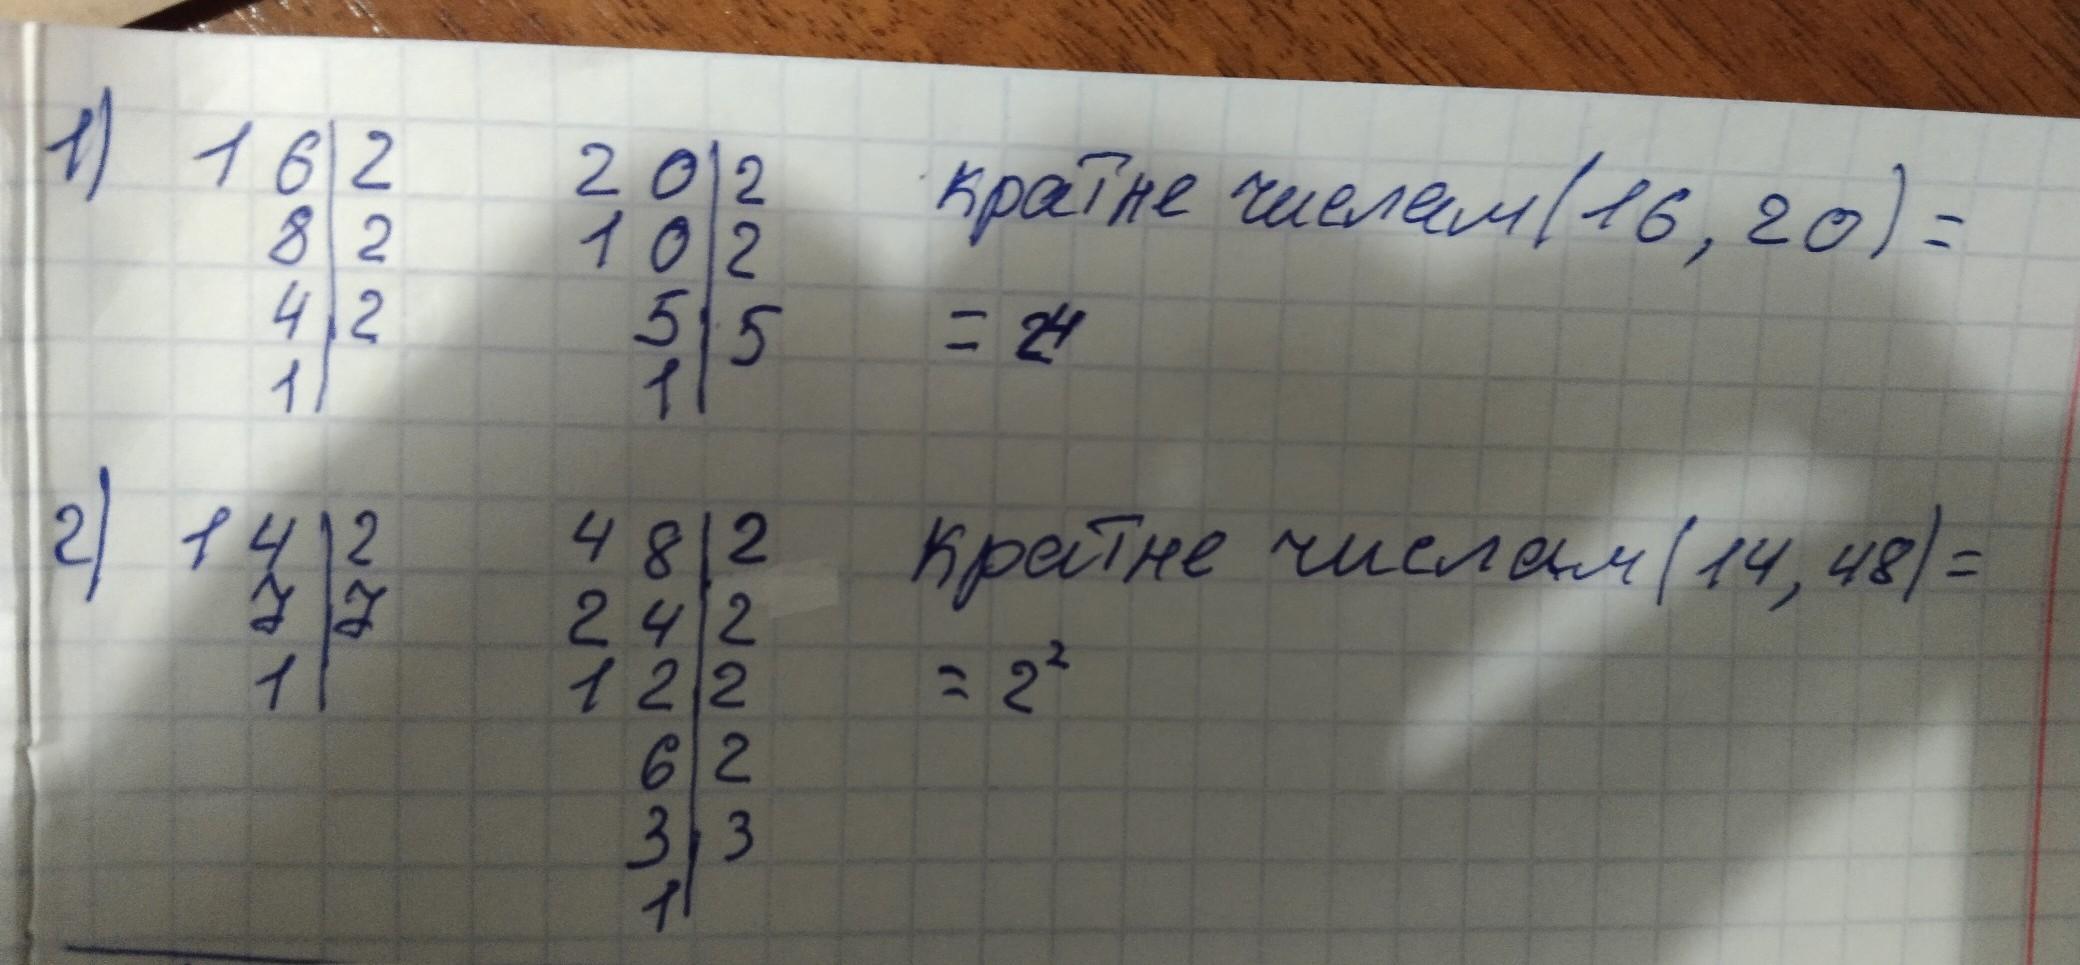 1) 16|2 20|2 кратне числам (16, 20) =
8|2 10|2
4|2 5|5 =
1| 1|
2) 14|2 48|2 кратне числам (14, 48) =
7|7 24|2
1| 12|2 = 2²
6|2
3|3
1|